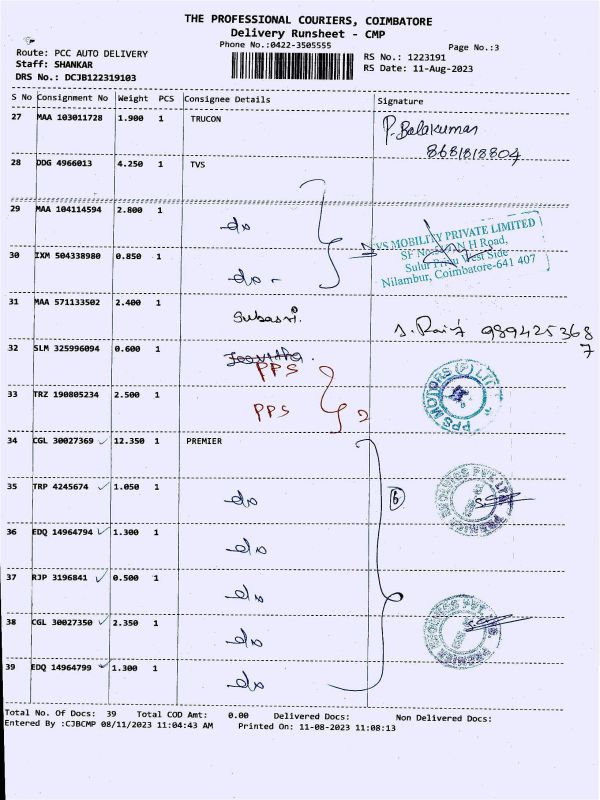 THE PROFESSIONAL COURIERS, COIMBATORE
Delivery Runsheet - CMP
Phone No.:0422-3505555
Page No.:3
Route: PCC AUTO DELIVERY
Staff: SHANKAR
DRS No.: DCJB122319103
RS No.: 1223191
RS Date: 11-Aug-2023
S No Consignment No Weight PCS Consignee Details Signature
27 MAA 103011728 1.900 1 TRUCON P. Balakumar
8681818804
28 DDG 4966013 4.250 1 TVS
29 MAA 104114594 2.800 1 do
VS MOBILITY PRIVATE LIMITED
N H Road,
Sulur West Side
Nilambur, Coimbatore-641 407
30 IXM 504338980 0.850 1 do -
31 MAA 571133502 2.400 1 Subasri.
989425368
7
32 SLM 325996094 0.600 1 PPS
33 TRZ 190805234 2.500 1 PPS 2
PPS MOTORS (P) LIT
34 CGL 30027369 ✓ 12.350 1 PREMIER
35 TRP 4245674 ✓ 1.050 1 do 6
36 EDQ 14964794 ✓ 1.300 1 do
37 RJP 3196841 ✓ 0.500 1 do
38 CGL 30027350 ✓ 2.350 1 do
39 EDQ 14964799 ✓ 1.300 1 do
Total No. Of Docs: 39 Total COD Amt: 0.00 Delivered Docs: Non Delivered Docs:
Entered By :CJBCMP 08/11/2023 11:04:43 AM Printed On: 11-08-2023 11:08:13